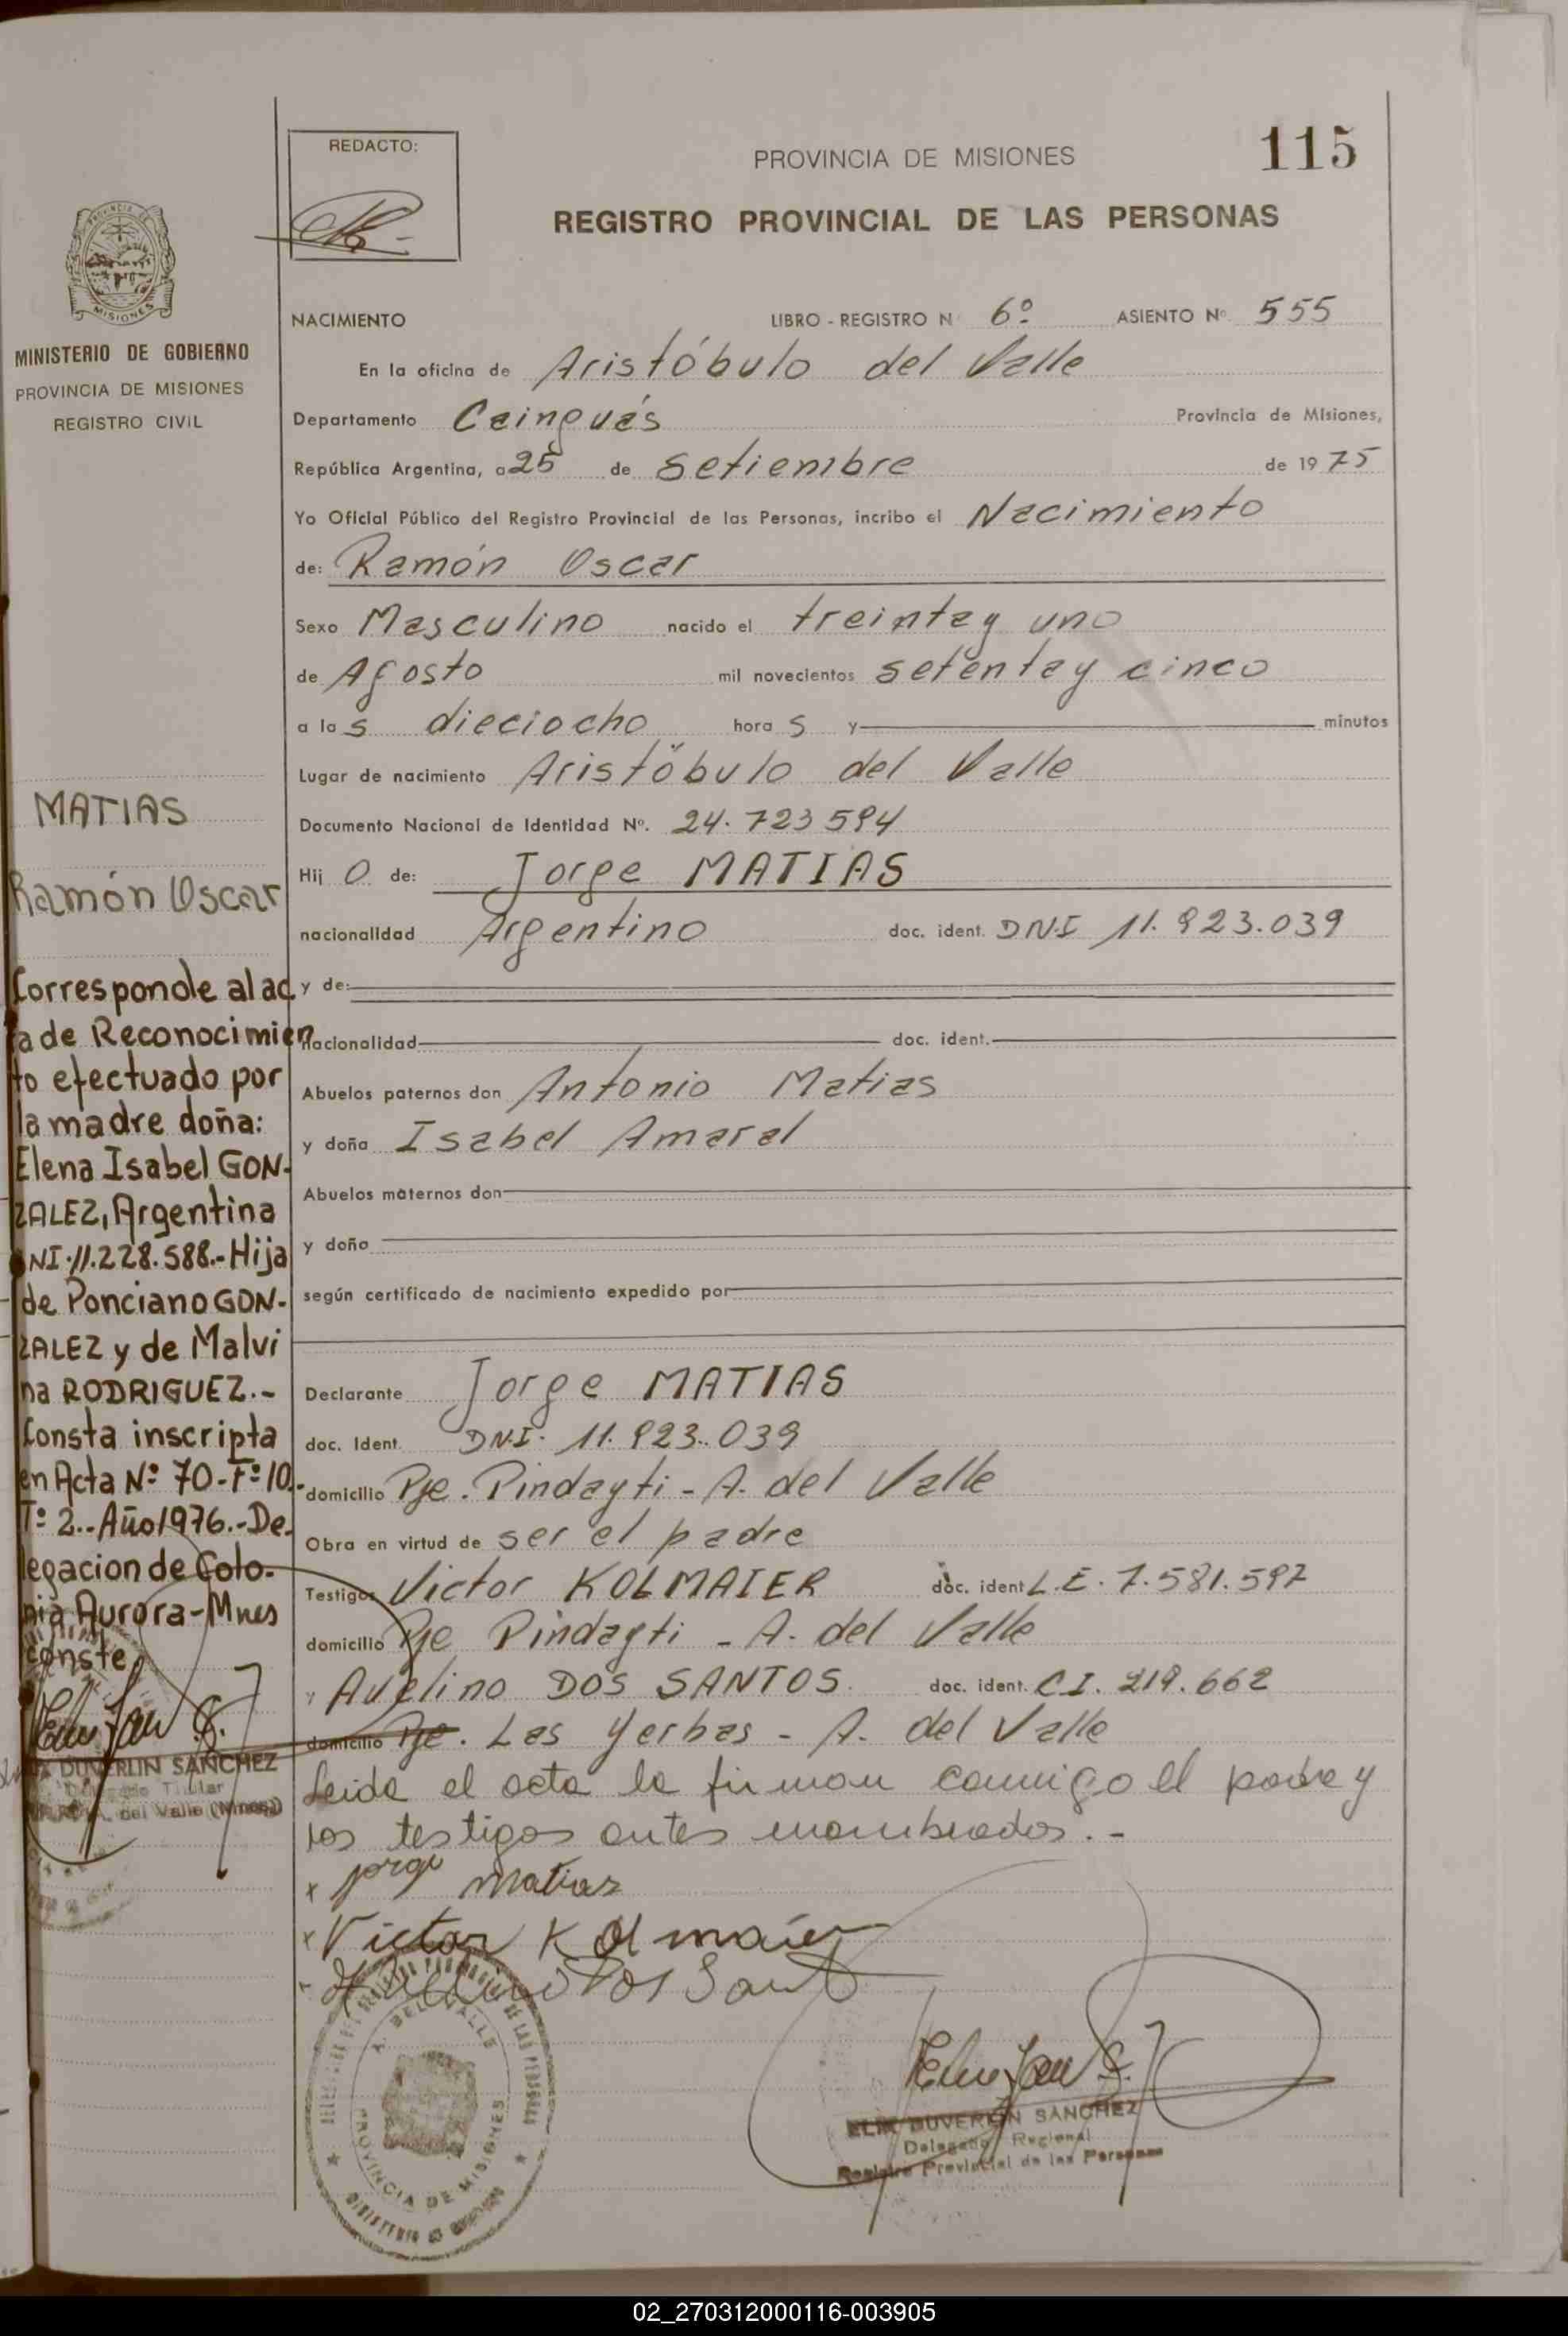 REDACTO:
PROVINCIA DE MISIONES
115
REGISTRO PROVINCIAL DE LAS PERSONAS
PROVINCIA DE
MISIONES
MINISTERIO DE GOBIERNO
PROVINCIA DE MISIONES
REGISTRO CIVIL
NACIMIENTO LIBRO - REGISTRO N 6º ASIENTO Nº 555
En la oficina de Aristóbulo del Valle
Departamento Cainguás Provincia de Misiones,
República Argentina, a 25 de Setiembre de 1975
Yo Oficial Público del Registro Provincial de las Personas, incribo el Nacimiento
de: Ramón Oscar
Sexo Masculino nacido el treintay uno
de Agosto mil novecientos setentay cinco
a las dieciocho horas y minutos
Lugar de nacimiento Aristóbulo del Valle
Documento Nacional de Identidad Nº. 24.723594
Hijo de: Jorge MATIAS
nacionalidad Argentino doc. ident. DNI 11.923.039
y de:
nacionalidad doc. ident.
Abuelos paternos don Antonio Matias
y doña Isabel Amaral
Abuelos maternos don
y doña
según certificado de nacimiento expedido por
Declarante Jorge MATIAS
doc. Ident. DN.I. 11.923.039
domicilio Pje. Pindayti - A. del Valle
Obra en virtud de ser el padre
Testigos Victor KOLMAIER doc. ident L.E. 7.581.597
domicilio Pje Pindayti - A. del Valle
y Avelino DOS SANTOS. doc. ident. C.I. 219.662
domicilio Pje. Las Yerbas - A. del Valle
Leida el acta la firman conmigo el padre y
los testigos antes mombrados.-
x jorge Matias
x Victor Kolmaier
MATIAS
Ramón Oscar
Corresponde al ac
ta de Reconocimien
to efectuado por
la madre doña:
Elena Isabel GON-
ZALEZ, Argentina
DNI.11.228.588.- Hija
de Ponciano GON-
ZALEZ y de Malvi
na RODRIGUEZ.-
Consta inscripta
en Acta Nº 70-Fº10.-
Tº 2.-Año1976.-De-
legacion de Colo-
nia Aurora-Mnes
conste
DUVERLIN SANCHEZ
Delegado Titular
del Valle (Mnes)
A. DEL VALLE
PROVINCIA DE MISIONES
DUVERLIN SANCHEZ
Delegado Regional
Registro Provincial de las Personas
02_270312000116-003905